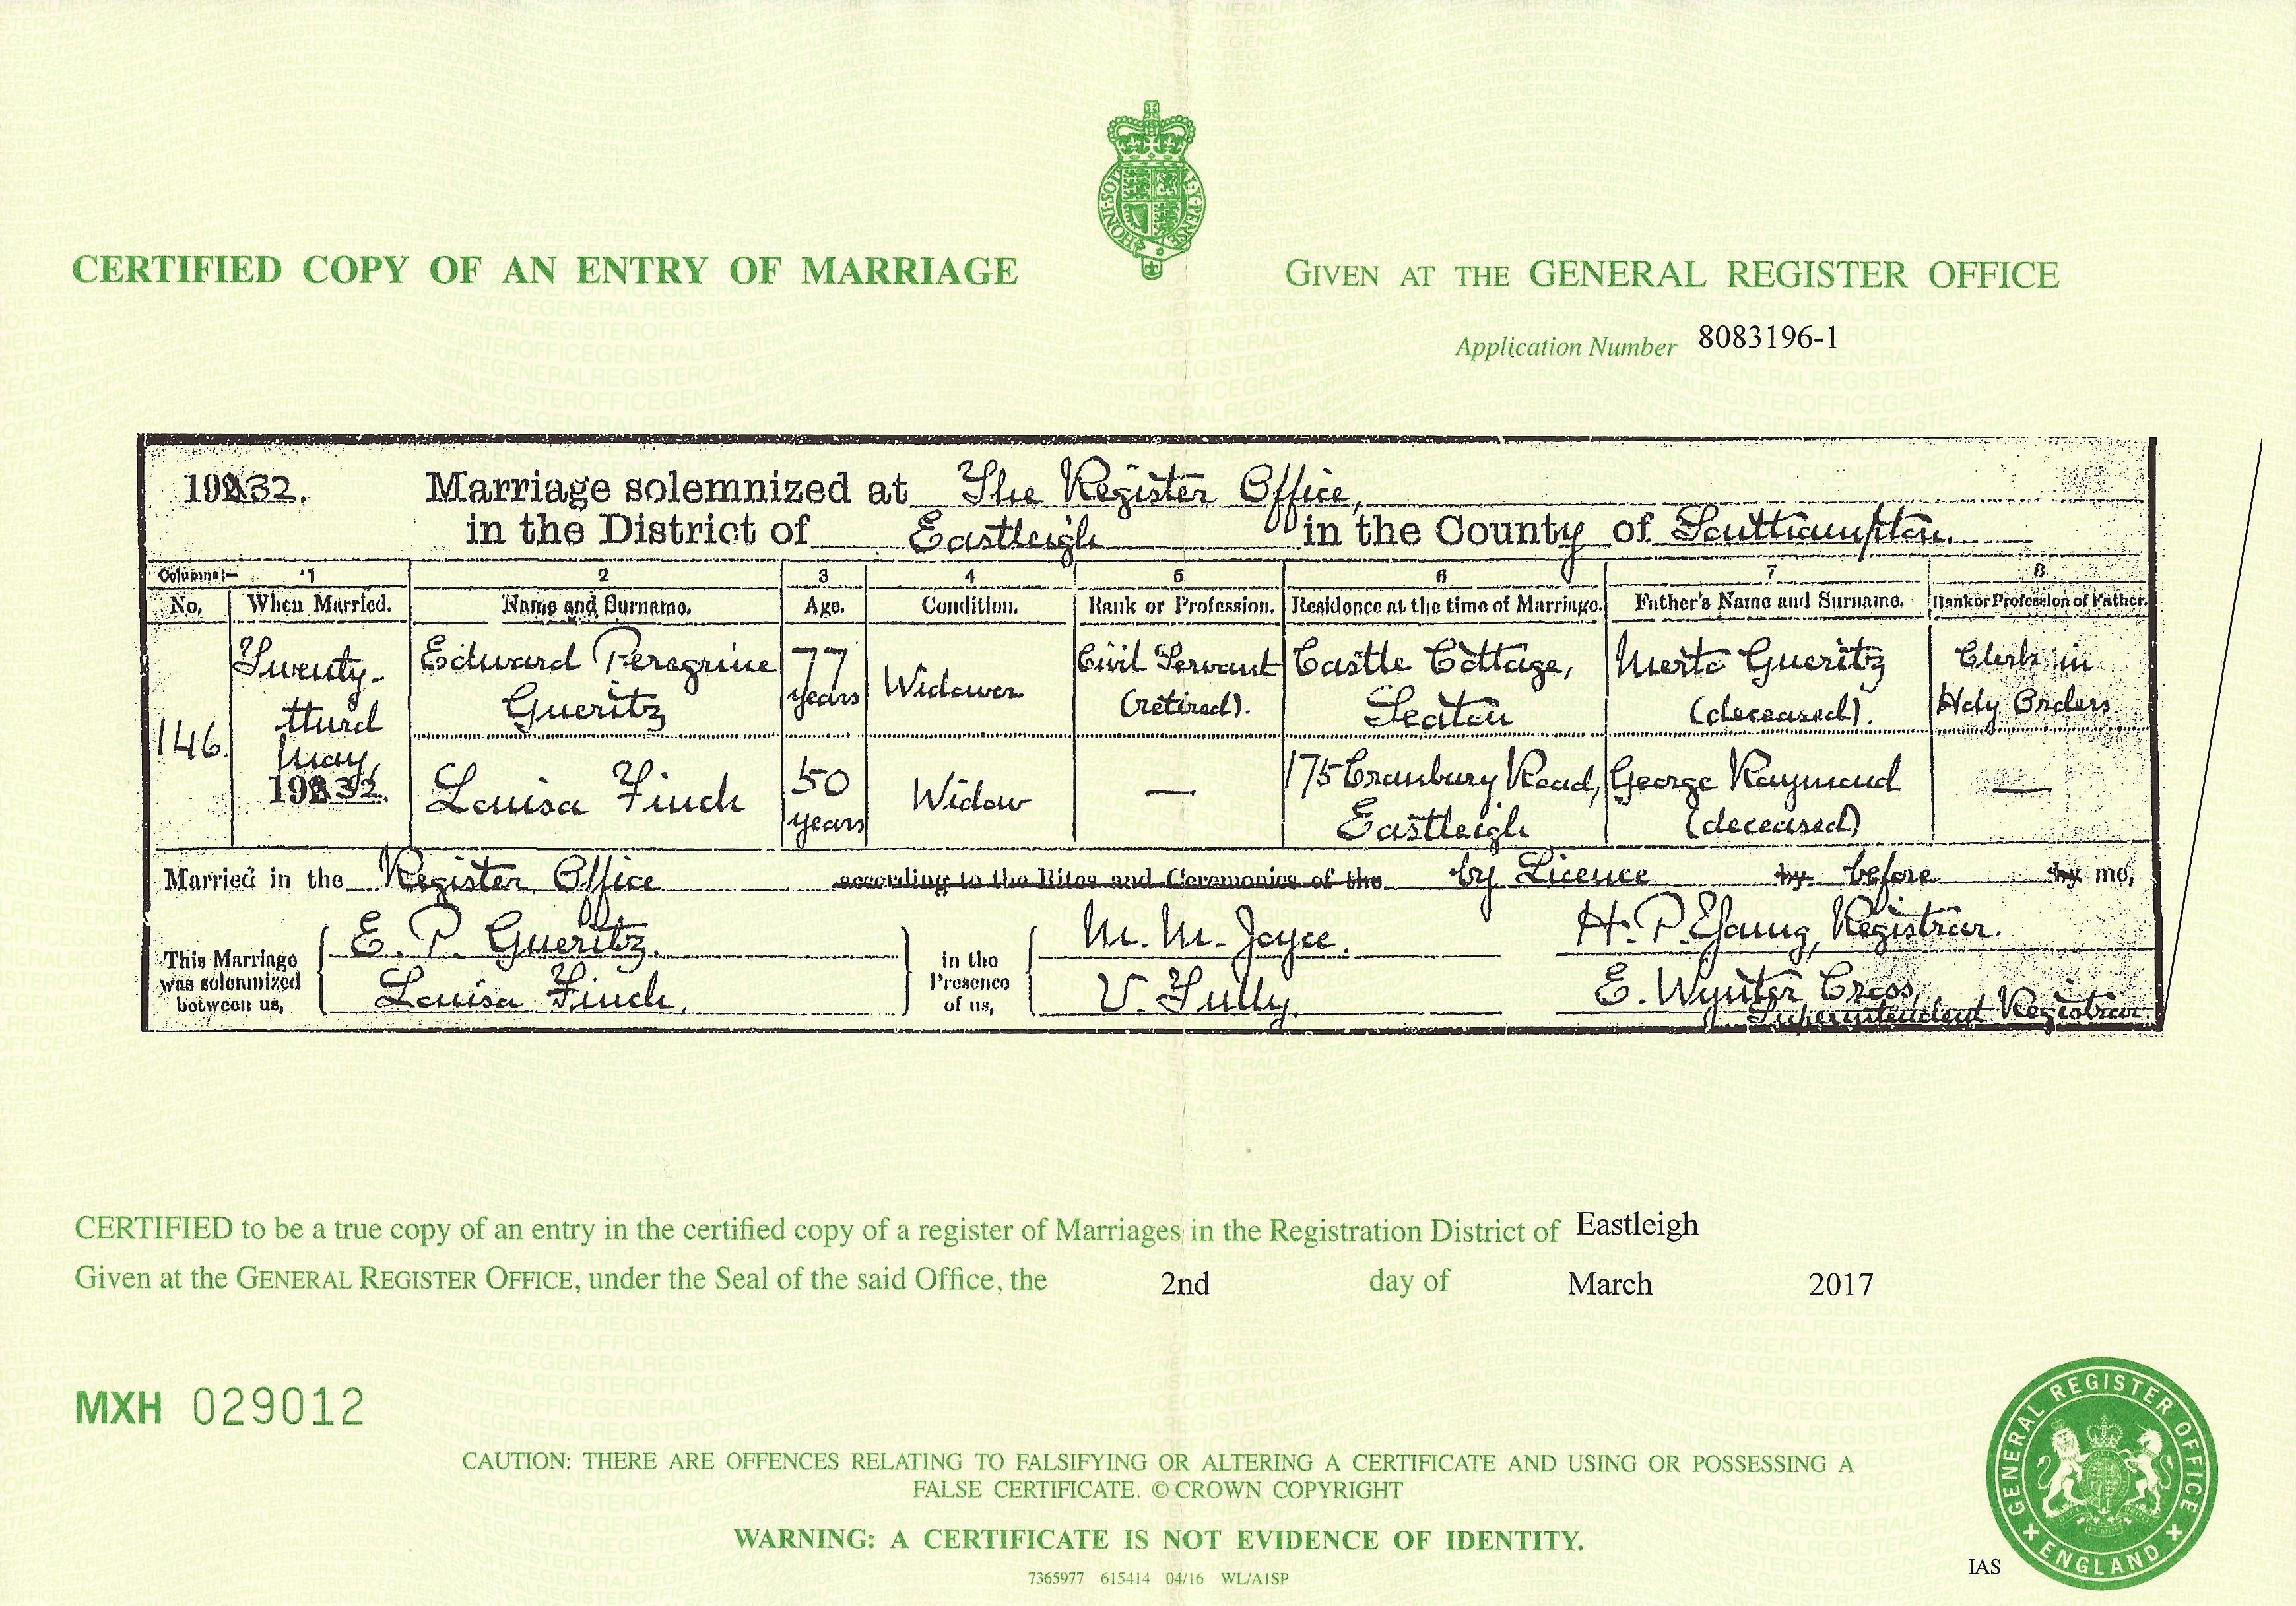 CERTIFIED COPY OF AN ENTRY OF MARRIAGE
GIVEN AT THE GENERAL REGISTER OFFICE
Application Number 8083196-1
1932. Marriage solemnized at The Register Office,
in the District of Eastleigh in the County of Southampton.
Columns:— 1 2 3 4 5 6 7 8
No. When Married. Name and Surname. Age. Condition. Rank or Profession. Residence at the time of Marriage. Father's Name and Surname. Rank or Profession of Father.
146. Twenty-third May, 1932. Edward Peregrine Gueritz 77 years Widower Civil Servant (retired). Castle Cottage, Seaton Gueritz (deceased). Clerk in Holy Orders
Louisa Finch 50 years Widow — 175 Cranbury Road, Eastleigh George Raymond (deceased) —
Married in the Register Office according to the Rites and Ceremonies of the by Licence by before by me,
This Marriage was solemnized between us, E. P. Gueritz. Louisa Finch. in the Presence of us, M. M. Joyce. V. Tully. H. P. Young, Registrar.
E. Wynter Cross, Superintendent Registrar.
CERTIFIED to be a true copy of an entry in the certified copy of a register of Marriages in the Registration District of Eastleigh
Given at the GENERAL REGISTER OFFICE, under the Seal of the said Office, the 2nd day of March 2017
MXH 029012
CAUTION: THERE ARE OFFENCES RELATING TO FALSIFYING OR ALTERING A CERTIFICATE AND USING OR POSSESSING A
FALSE CERTIFICATE. © CROWN COPYRIGHT
WARNING: A CERTIFICATE IS NOT EVIDENCE OF IDENTITY.
7365977 615414 04/16 WL/A1SP
IAS
GENERAL REGISTER OFFICE
ENGLAND